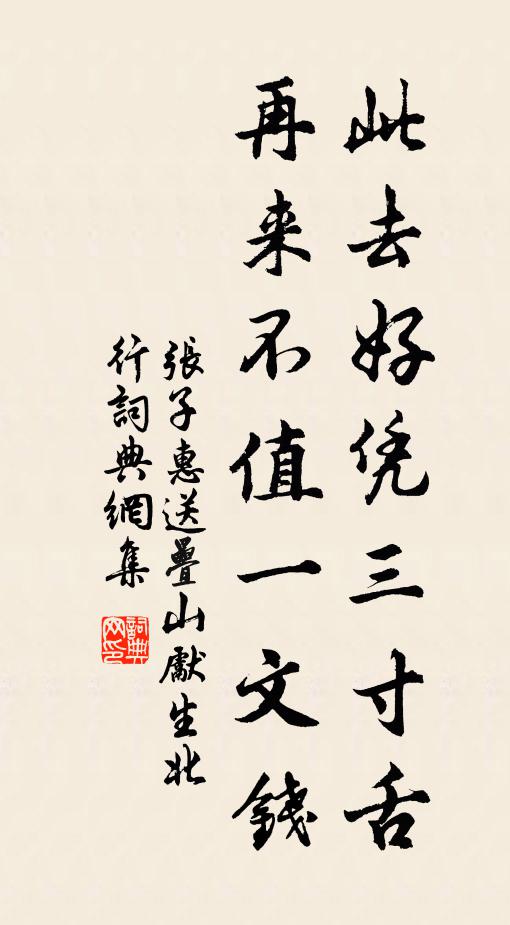 此去好凭三寸舌
再来不值一文錢
張子惠送疊山獻生北
行詞典網集
詞典网印